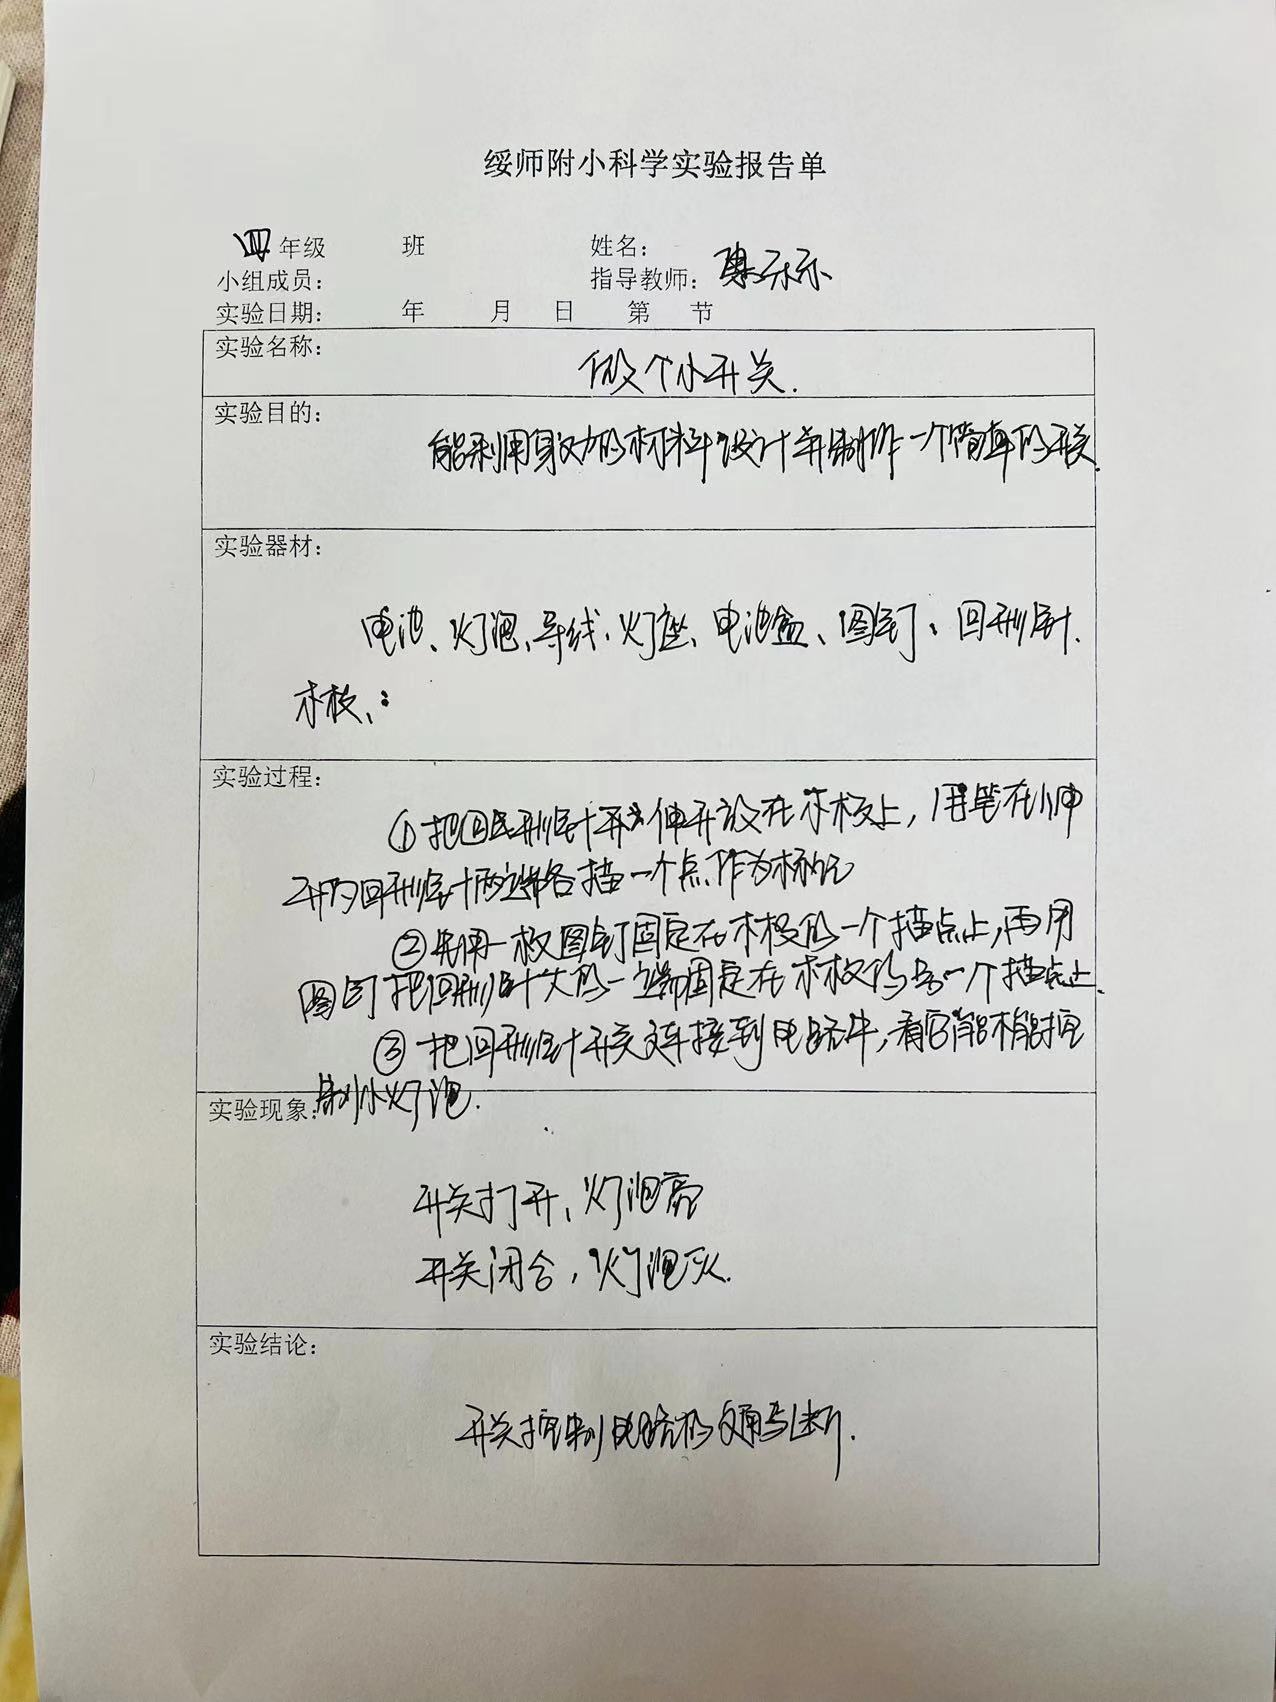 绥师附小科学实验报告单
四年级 班 姓名：
小组成员： 指导教师：
实验日期： 年 月 日 第 节
实验名称：
做个小开关.
实验目的：
能利用身边的材料设计并制作一个简单的开关.
实验器材：
电池、灯泡、导线、灯座、电池盒、图钉、回形针、
木板、
实验过程：
①把回形针开伸开放在木板上，用笔在伸
开的回形针两端各描一个点作为标记
②先用一枚图钉固定在木板的一个描点上，再用
图钉把回形针的一端固定在木板的另一个描点上.
③把回形针开关连接到电路中，看它能不能控
制小灯泡.
实验现象：
开关打开，灯泡亮
开关闭合，灯泡灭.
实验结论：
开关控制电路的通与断.